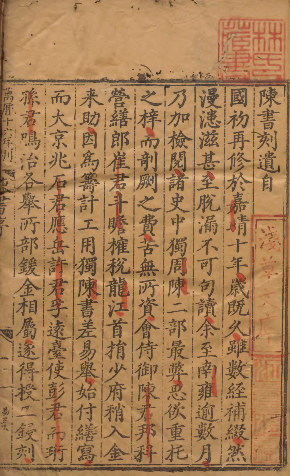 陳書刻遺目
國初再修於嘉靖十年歲既久雖數經補綴然
漫漶滋甚至脱漏不可句讀余至南雍逾數月
乃加檢閱諸史中獨周陳二部最弊思欲重托
之梓而剞劂之費古無所資會侍御陳君邦科
營繕郎崔君斗瞻榷税龍江首捐少府稍入金
来助因為籌計工用獨陳書差易舉始付繕寫
而大京兆石君應岳許君孚遠臺使彭君而珩
孫君鳴治各舉所部鍰金相屬遂得授工鋟刻
萬曆十六年刊